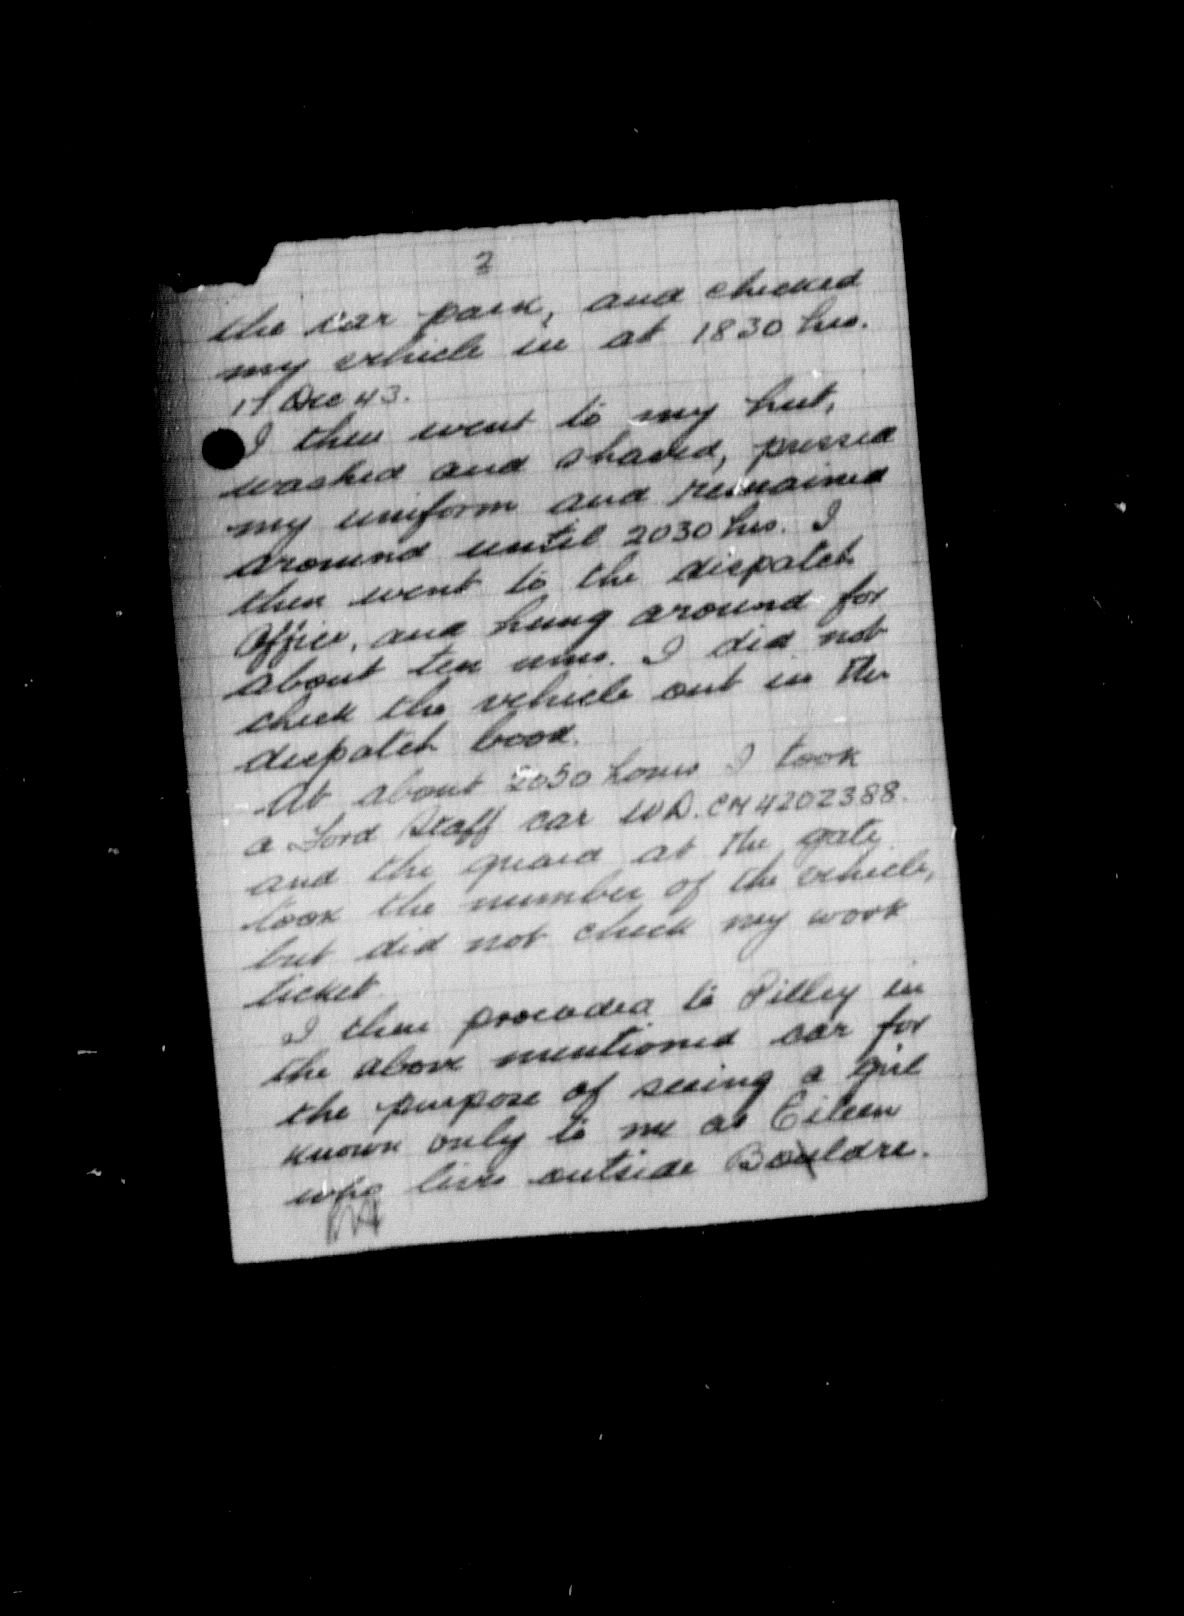 2
the car park, and checked
my vehicle in at 1830 hrs.
17 Dec 43.
I then went to my hut,
washed and shaved, pressed
my uniform and remained
around until 2030 hrs. I
then went to the dispatch
Office, and hung around for
about ten mins. I did not
check the vehicle out in the
dispatch book.
At about 2050 hours I took
a Ford Staff car WD. CM4202388.
and the guard at the gate
took the number of the vehicle,
but did not check my work
ticket.
I then proceded to Pilley in
the above mentioned car for
the purpose of seeing a girl
known only to me as Eileen
who live outside Bouldre.